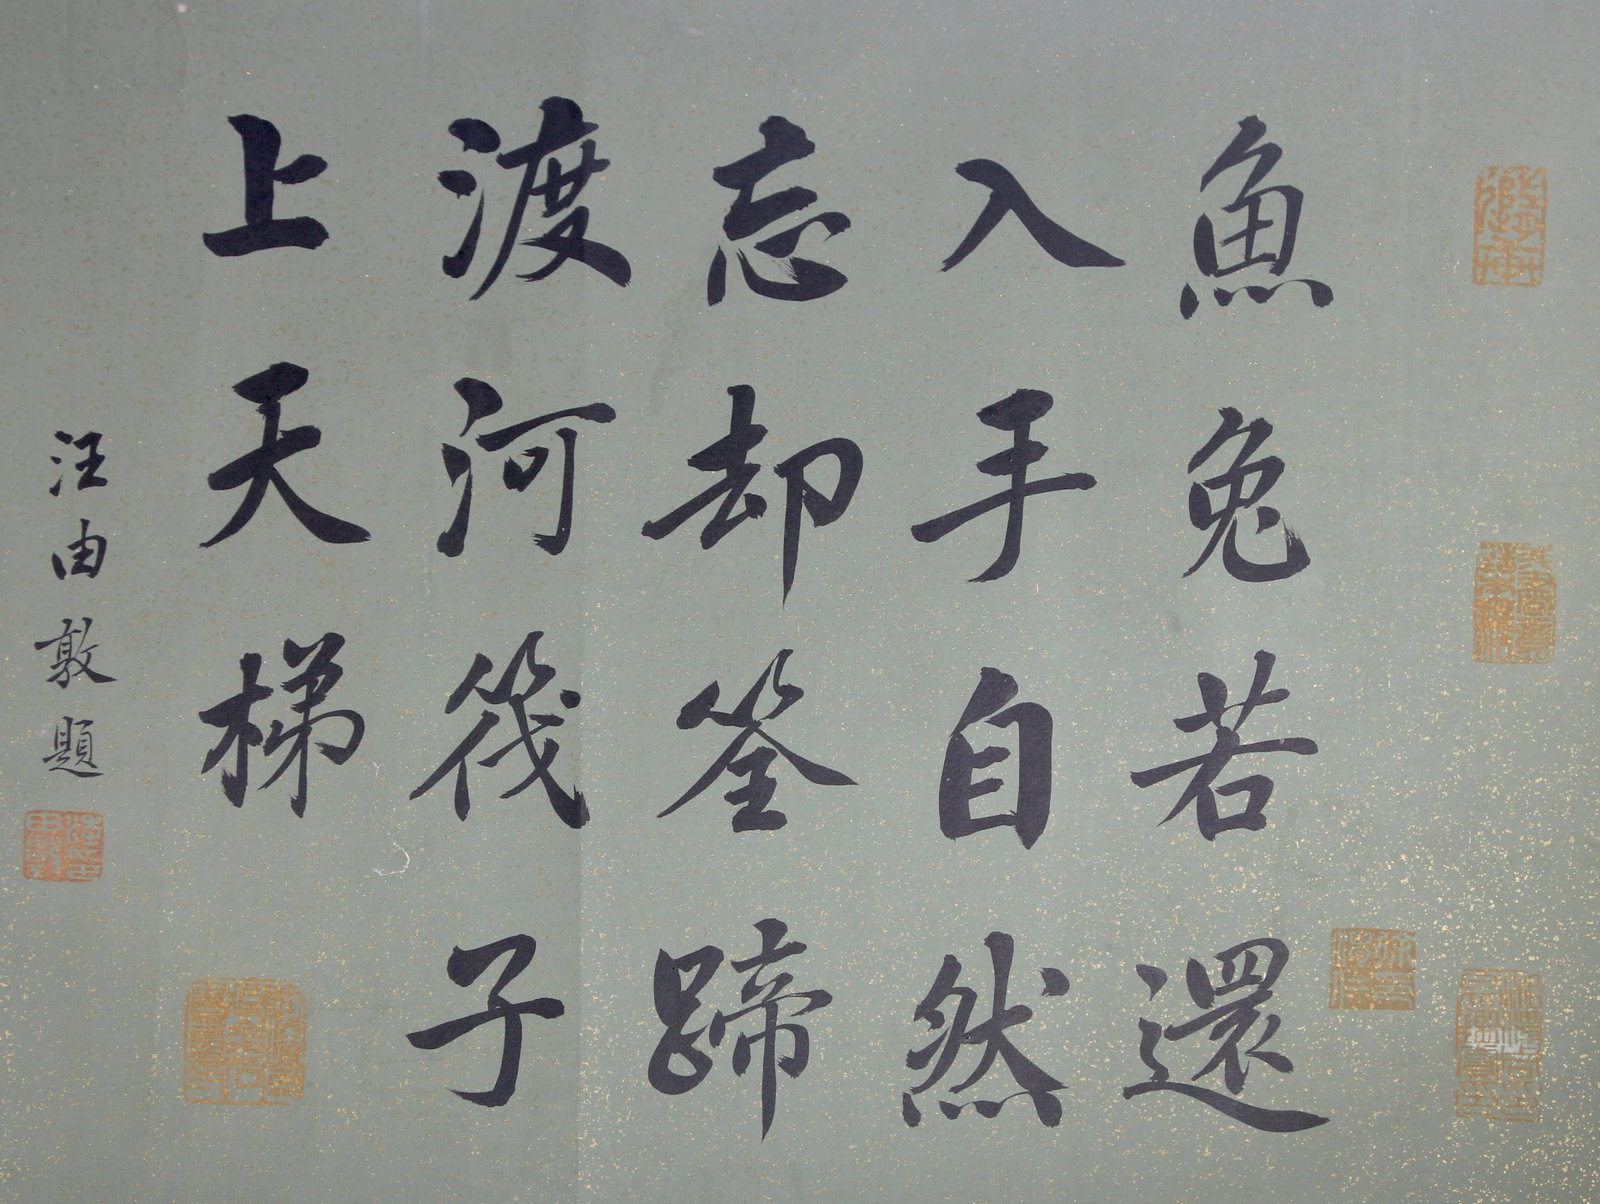 魚兔若還
入手自然
忘却筌蹄
渡河筏子
上天梯
汪由敦題